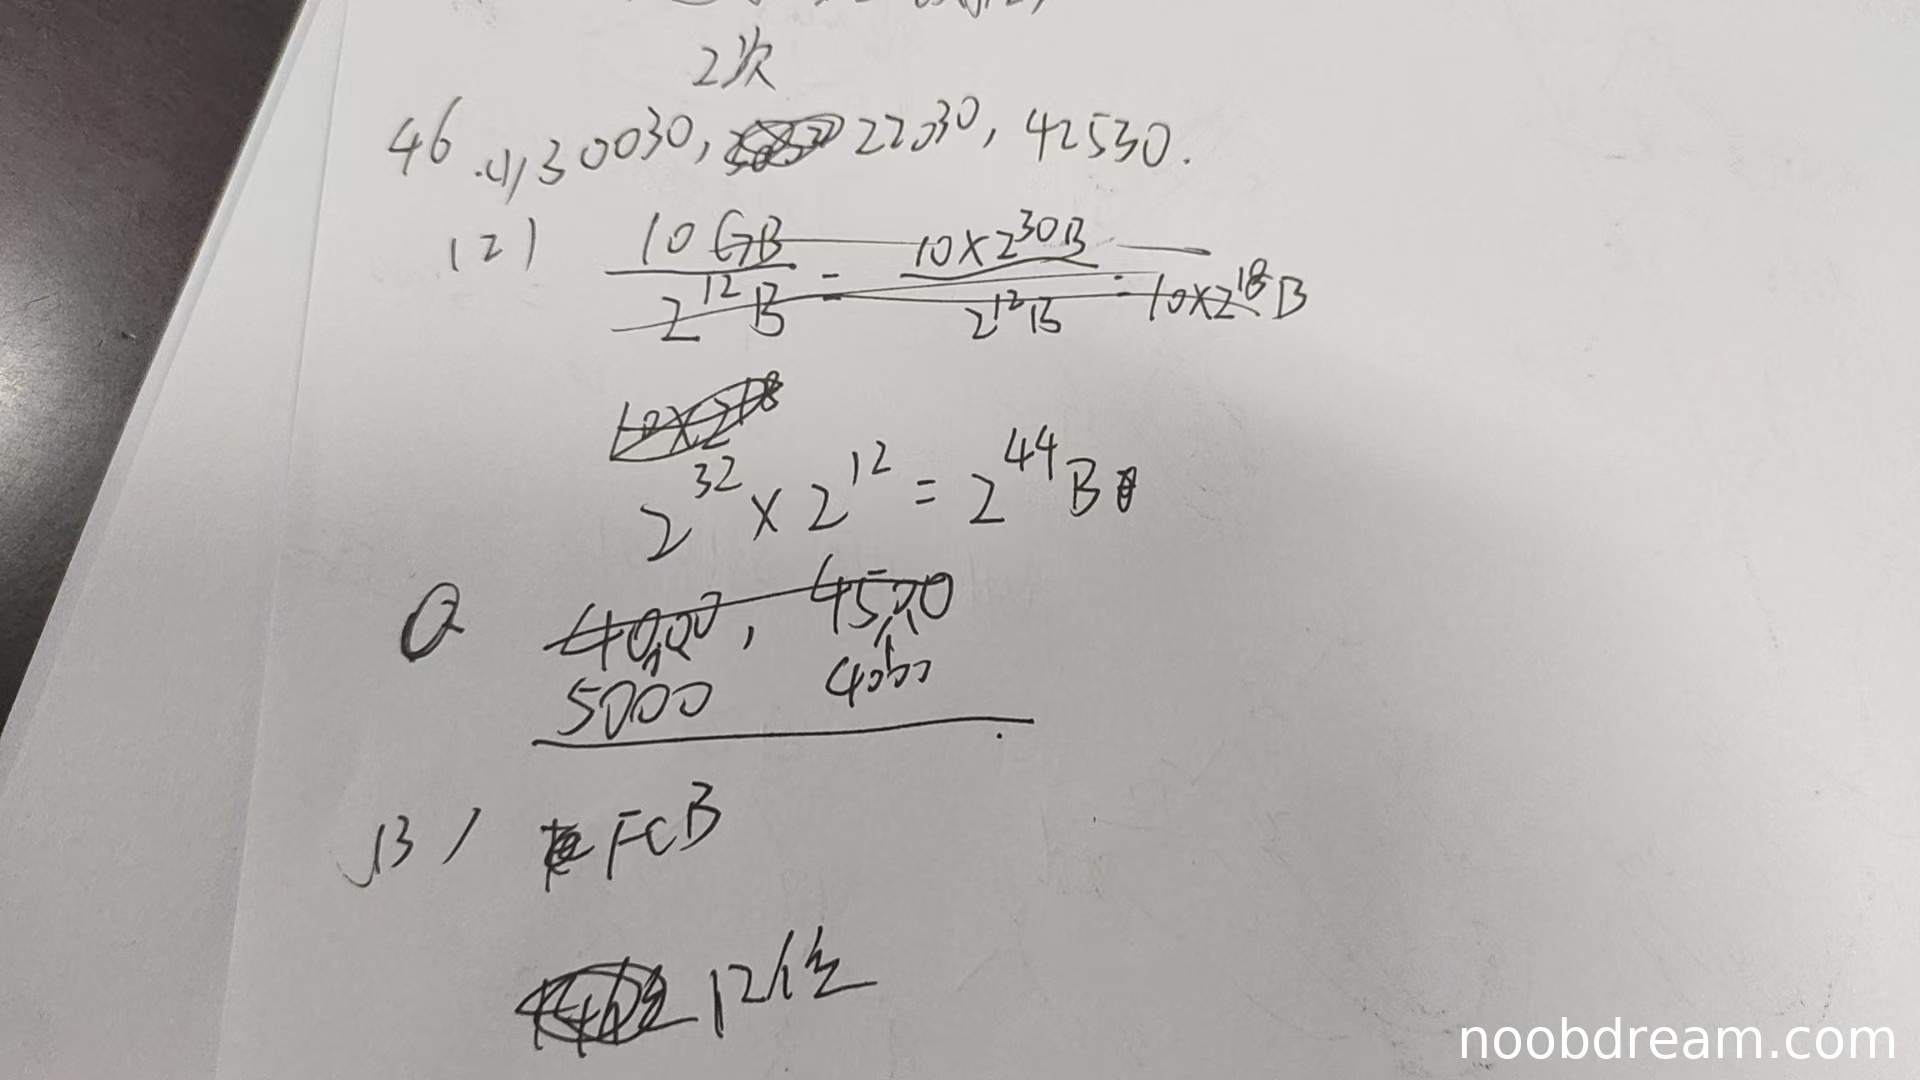 2次
46 .(1) 30030, 22030, 42530.
(2) 10GB / 2^12 B = 10×2^30 B / 2^12 B = 10×2^18 B
10×2^18
2^32 × 2^12 = 2^44 B
4000, 4500
5000 4000
(3) FCB
12位
noobdream.com